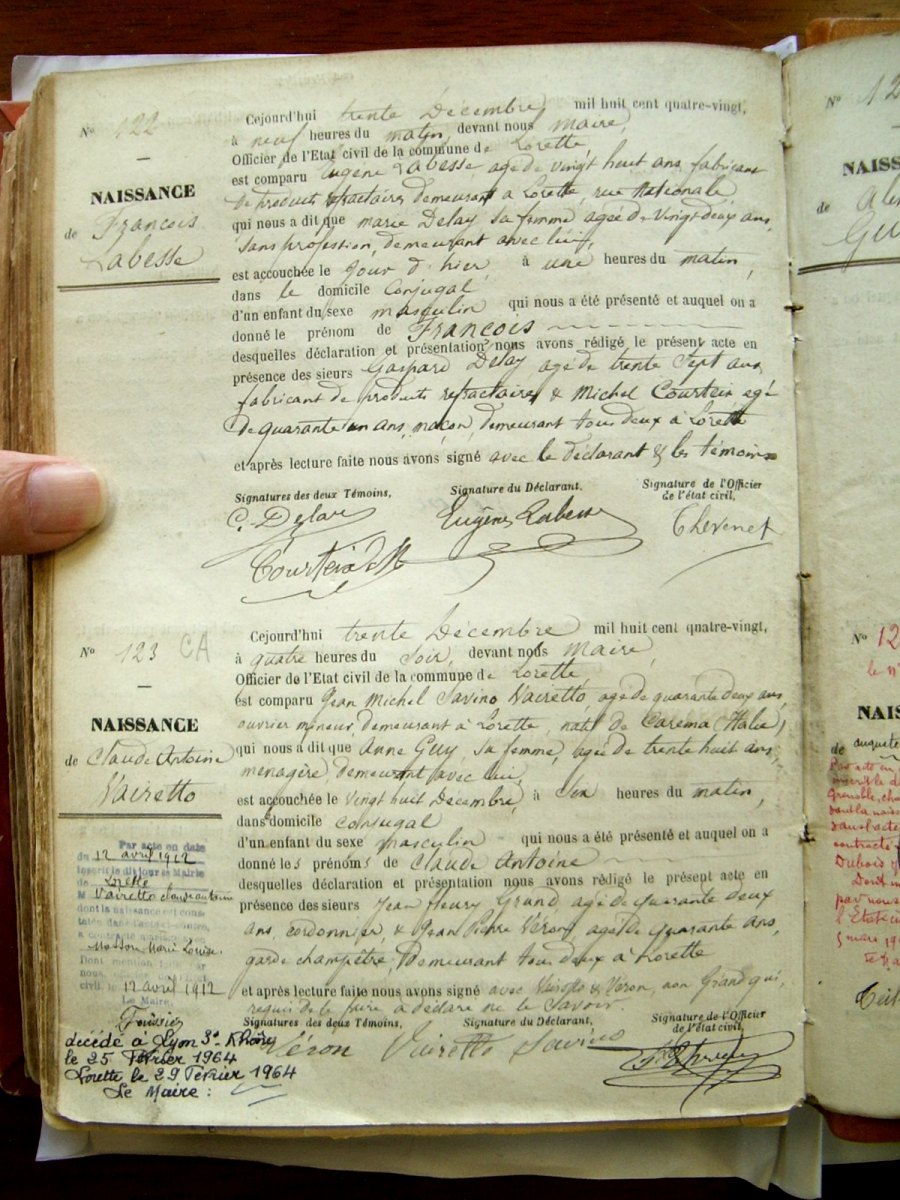 N° 122
NAISSANCE
de François
Labesse
Cejourd'hui trente Décembre mil huit cent quatre-vingt,
à neuf heures du matin, devant nous maire,
Officier de l'Etat civil de la commune de Lorette,
est comparu Eugène Labesse agé de vingt huit ans, fabricant
de produits refractaires, demeurant a Lorette, rue Nationale,
qui nous a dit que marie Delay sa femme agée de vingt deux ans,
sans profession, demeurant avec lui,
est accouchée le jour d'hier, à une heures du matin,
dans le domicile conjugal
d'un enfant du sexe masculin qui nous a été présenté et auquel on a
donné le prénom de François
desquelles déclaration et présentation nous avons rédigé le présent acte en
présence des sieurs Gaspard Delay agé de trente sept ans,
fabricant de produits refractaires & Michel Courteix, agé
de quarante un ans, maçon, demeurant tous deux à Lorette
et après lecture faite nous avons signé avec le déclarant & les témoins
Signatures des deux Témoins,
Signature du Déclarant.
Signature de l'Officier
de l'état civil,
Eugène Labesse
Thevenet
N° 123 CA
NAISSANCE
de Claude Antoine
Vairetto
Cejourd'hui trente Décembre mil huit cent quatre-vingt,
à quatre heures du soir, devant nous Maire,
Officier de l'Etat civil de la commune de Lorette,
est comparu Jean Michel Savino Vairetto, agé de quarante deux ans,
ouvrier mineur, demeurant à Lorette, natif de Carema (Italie)
qui nous a dit que Anne Guy, sa femme, agée de trente huit ans,
menagère, demeurant avec lui,
est accouchée le vingt huit Décembre, à six heures du matin,
dans domicile conjugal
d'un enfant du sexe masculin qui nous a été présenté et auquel on a
donné les prénoms de Claude Antoine
desquelles déclaration et présentation nous avons rédigé le présent acte en
présence des sieurs Jean Fleury Grand agé de quarante deux
ans, cordonnier, & Jean Pierre Véron, agé de quarante ans,
garde champêtre, Demeurant tous deux à Lorette
et après lecture faite nous avons signé avec Vairetto & Véron, non Grand qui,
requis de le faire a déclaré ne le savoir.
Signatures des deux Témoins,
Signature du Déclarant,
Signature de l'Officier
de l'état civil,
Véron
Vairetto Savino
Par acte en date
du 12 avril 1912
inscrit le dit jour es Mairie
de Lorette
M Vairetto Claude Antoine
dont la naissance est cons-
tatée dans l'acte ci-contre,
a contracté mariage avec
Masson Marie Louise
Dont mention faite par
nous, officier de l'Etat
civil, le 12 avril 1912
Le Maire,
décédé à Lyon 3e Rhône
le 25 Février 1964
Lorette le 29 Février 1964
Le Maire :
N° 12
NAISS
de
N° 12
NAIS
de auguste